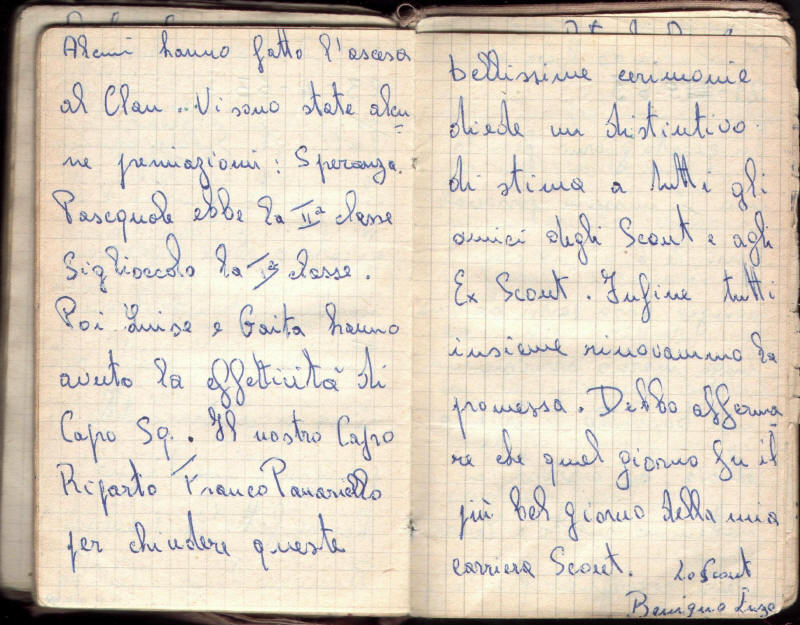 Alcuni hanno fatto l'ascesa
al Clan.. Vi sono state alcu
ne premiazioni: Speranza.
Pasquale ebbe la IIª classe
la Iª classe.
Poi e Gaita hanno
avuto la effettività di
Capo Sq.. Il nostro Capo
Riparto Franco Panariello
per chiudere queste
bellissime cerimonie
diede un distintivo
di stima a tutti gli
amici degli Scout e agli
Ex Scout. Infine tutti
insieme rinovammo la
promessa. Debbo afferma
re che quel giorno fu il
più bel giorno della mia
carriera Scout. Lo Scout
Benigno Enzo